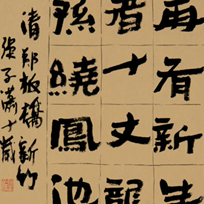 再有新生
者十丈龍
孫繞鳳池
清鄭板橋新竹
張子瀟十歲